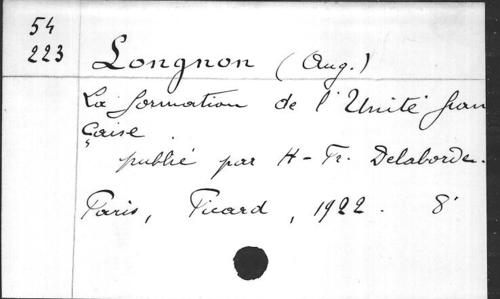 54
223
Longnon (Aug.)
La formation de l'Unité fran
çaise.
publié par H-Fr. Delaborde.
Paris, Picard, 1922. 8°